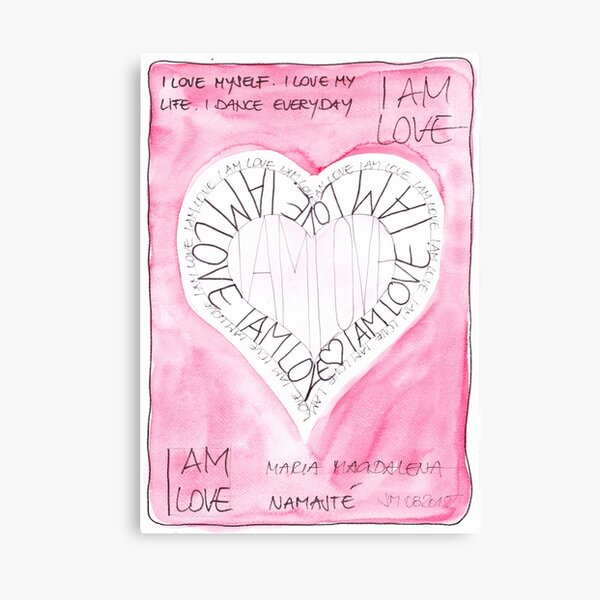 I LOVE MYSELF. I LOVE MY
LIFE. I DANCE EVERYDAY
I AM
LOVE
I AM LOVE I AM LOVE I AM LOVE I AM LOVE I AM LOVE
I AM LOVE I AM LOVE I AM LOVE I AM LOVE
I AM LOVE
I AM
LOVE
MARIA MAGDALENA
NAMASTÉ